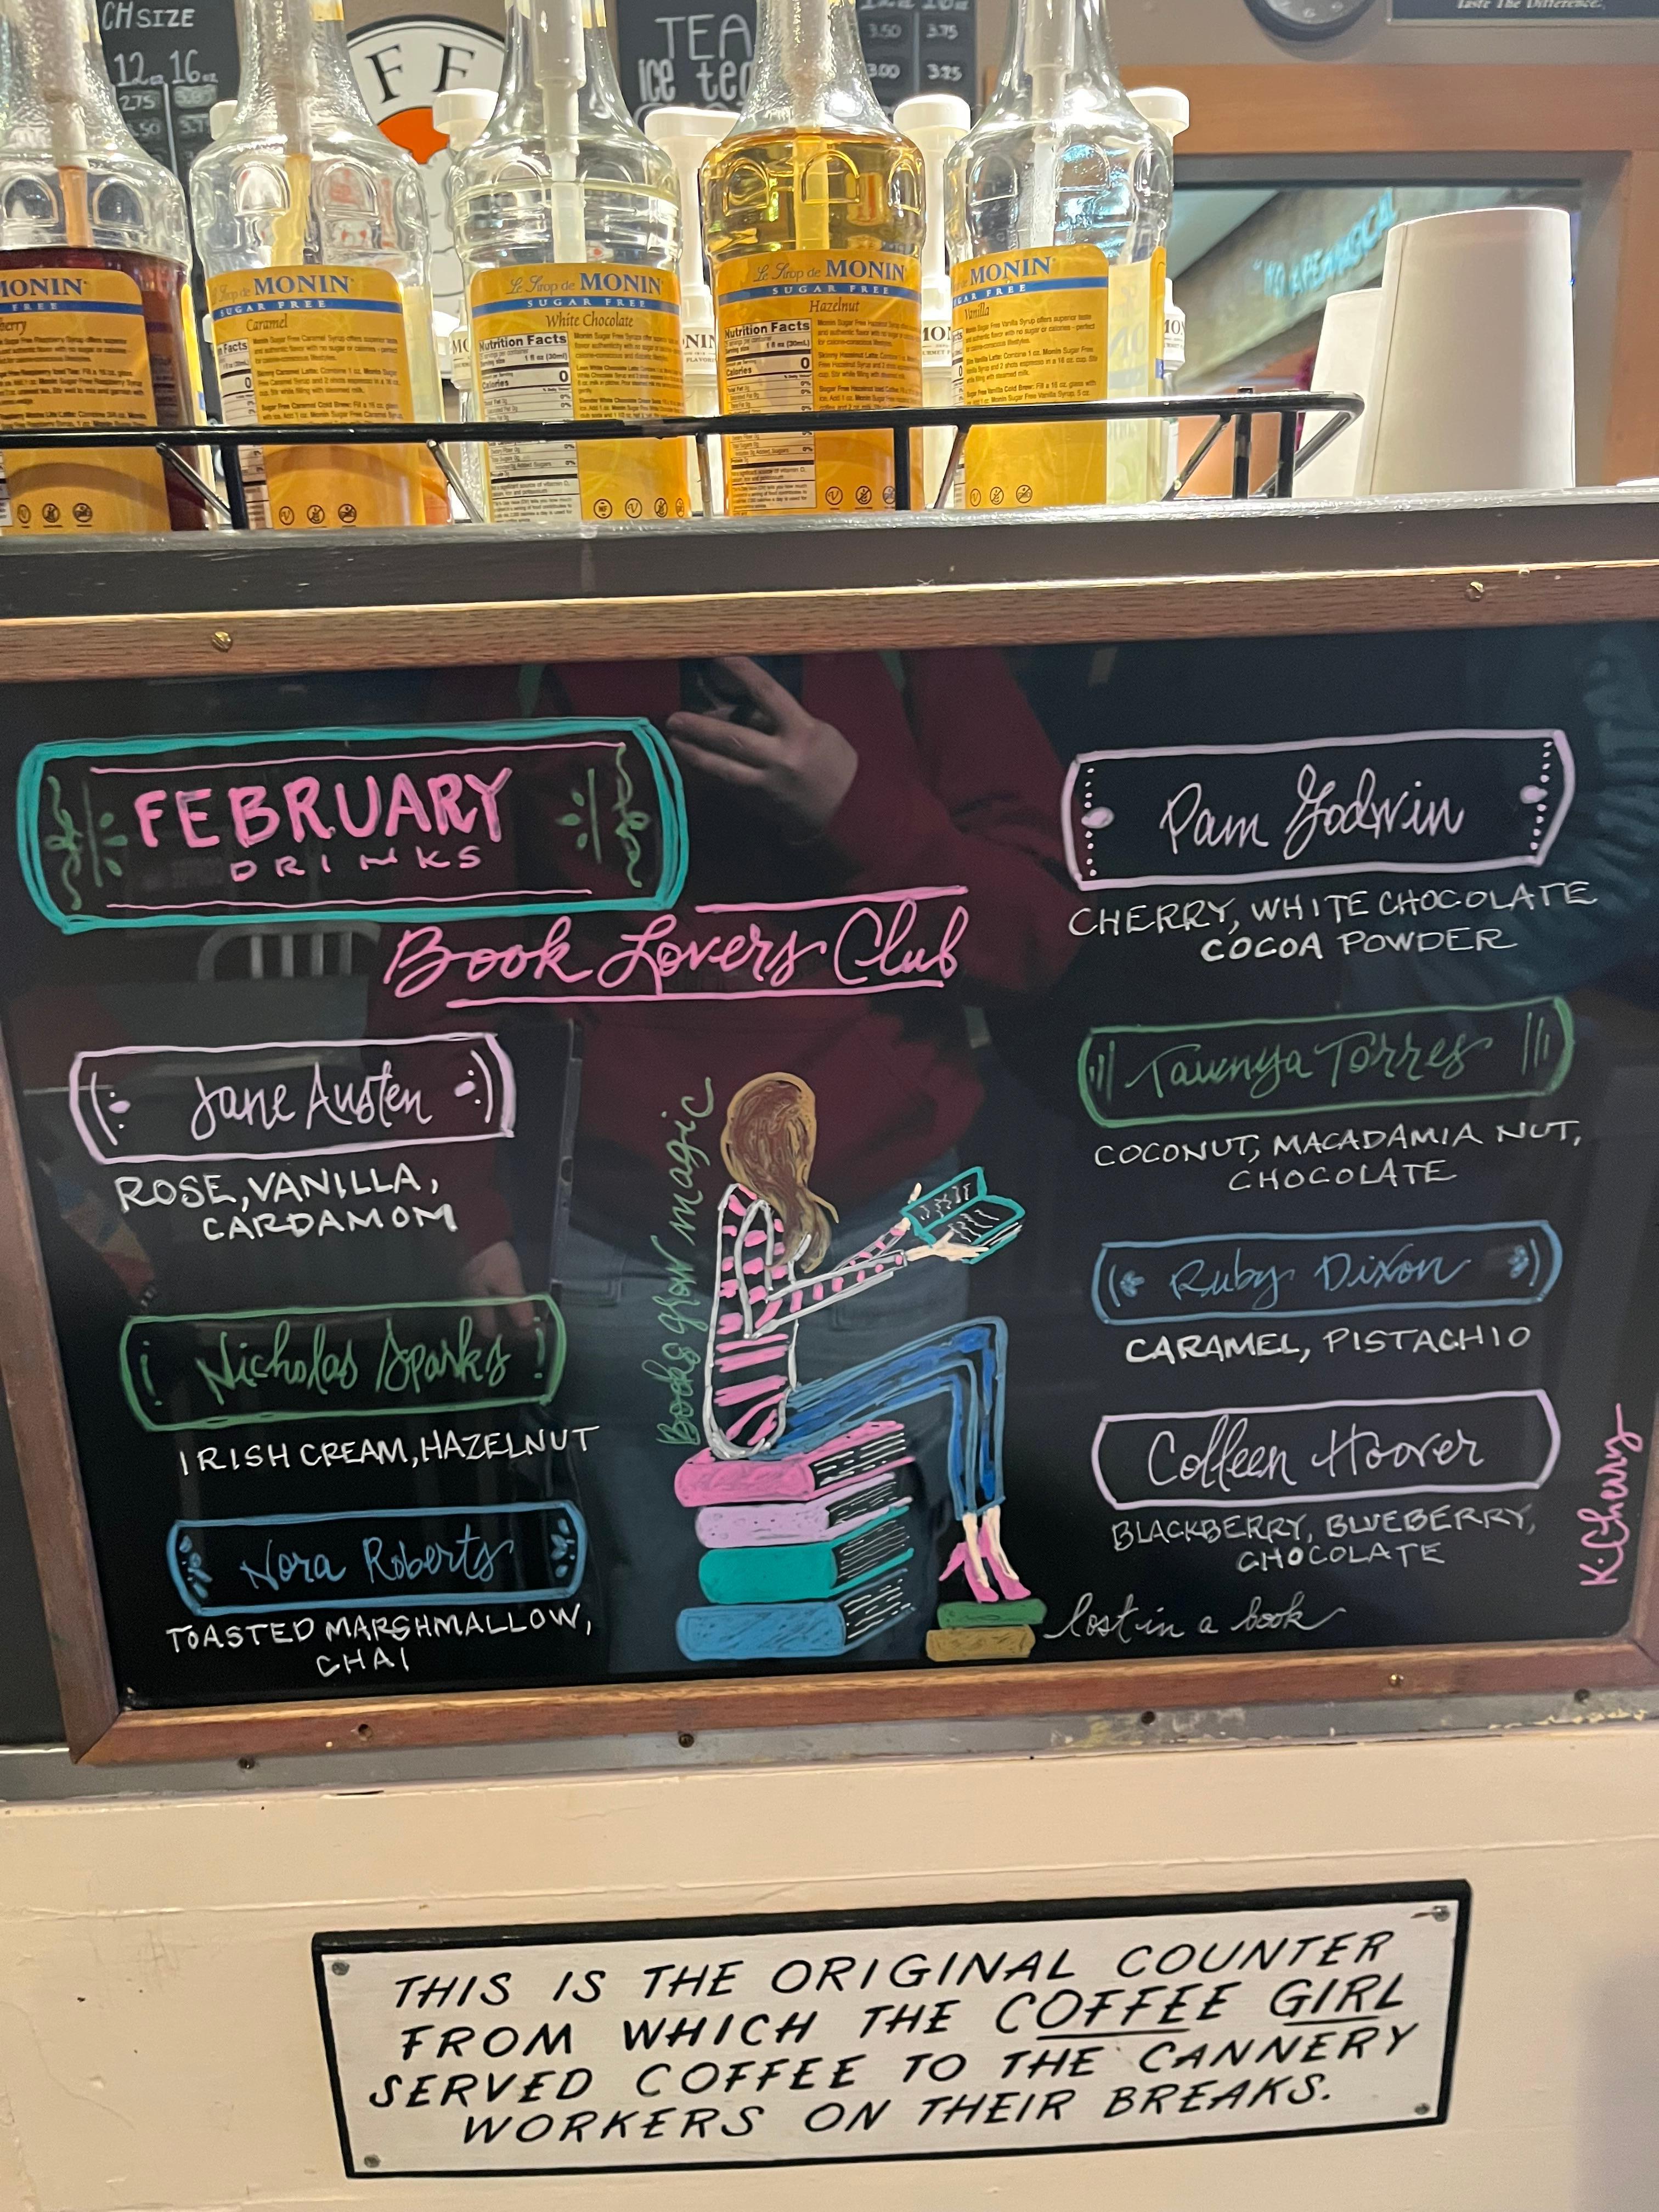 CH SIZE
12oz 16oz
2.75
FFE
TEA
ICE TEA
3.50 3.75
3.00 3.25
Taste The Difference.
MONIN
FREE
MONIN
SUGAR FREE
Caramel
Le Sirop de MONIN
SUGAR FREE
White Chocolate
Nutrition Facts
Calories 0
Le Sirop de MONIN
SUGAR FREE
Hazelnut
Nutrition Facts
Calories 0
MONIN
GAR FREE
Vanilla
FEBRUARY
DRINKS
Book Lovers Club
Jane Austen
ROSE, VANILLA,
CARDAMOM
Nicholas Sparks
IRISH CREAM, HAZELNUT
Nora Roberts
TOASTED MARSHMALLOW,
CHAI
Books grow magic
Pam Godwin
CHERRY, WHITE CHOCOLATE
COCOA POWDER
Tawnya Torres
COCONUT, MACADAMIA NUT,
CHOCOLATE
Ruby Dixon
CARAMEL, PISTACHIO
Colleen Hoover
BLACKBERRY, BLUEBERRY,
CHOCOLATE
lost in a book
K.Cherry
THIS IS THE ORIGINAL COUNTER
FROM WHICH THE COFFEE GIRL
SERVED COFFEE TO THE CANNERY
WORKERS ON THEIR BREAKS.